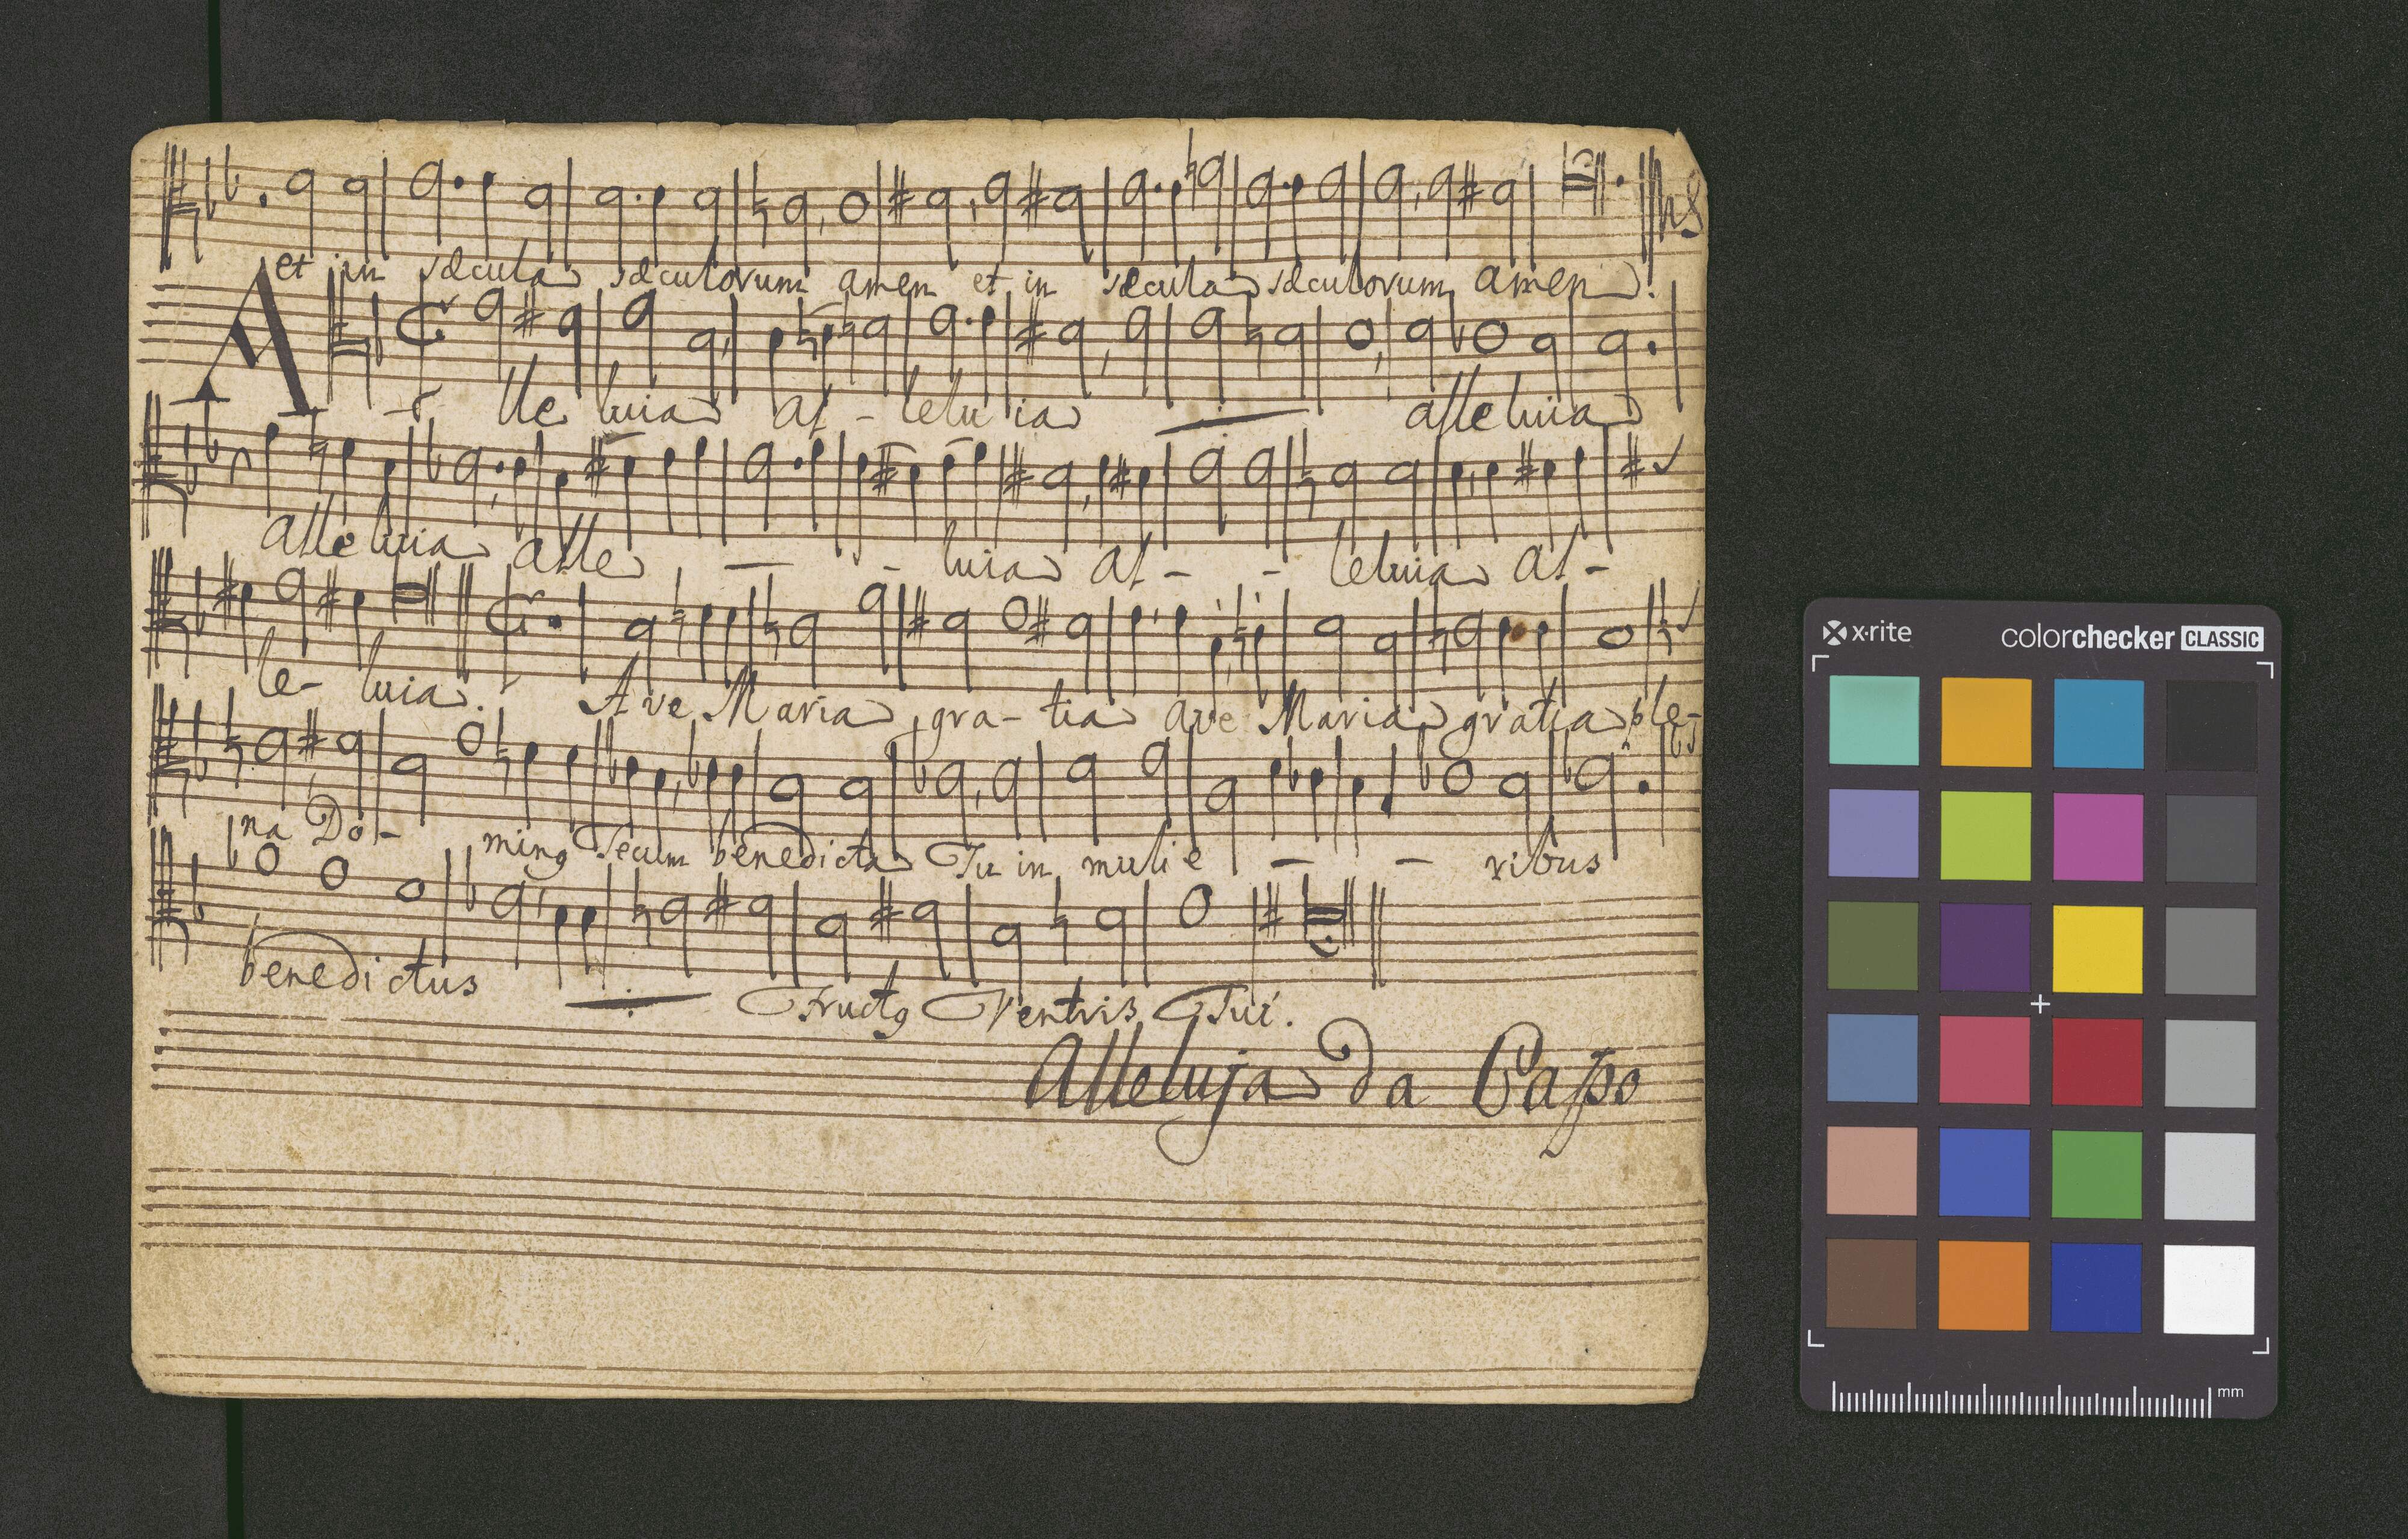 et in sæcula sæculorum amen et in sæcula sæculorum amen.
Alleluia al-leluia alleluia
alleluia alle - - luia al- - leluia al-
le- luia. Ave Maria gra-tia ave Maria gratia ple-
na Do- ming Tecum benedicta Tu in mulie - - ribus
benedictus Fructg Ventris Tui.
Alleluja da Capo
x·rite
colorchecker CLASSIC
mm